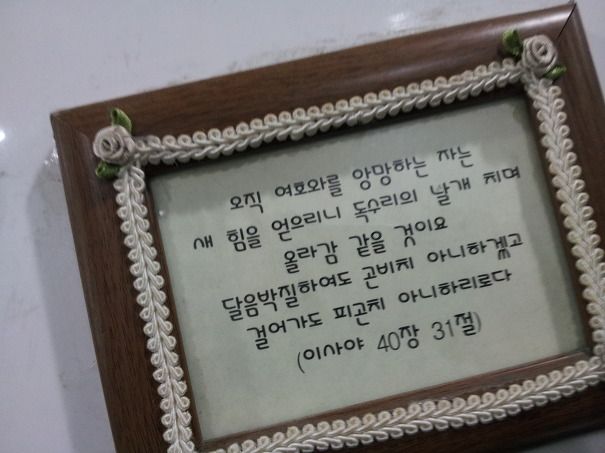 오직 여호와를 앙망하는 자는
새 힘을 얻으리니 독수리의 날개 치며
올라감 같을 것이요
달음박질하여도 곤비치 아니하겠고
걸어가도 피곤치 아니하리로다
(이사야 40장 31절)